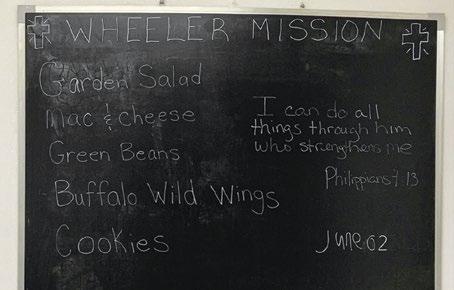 WHEELER MISSION
Garden Salad
Mac & cheese
Green Beans
Buffalo Wild Wings
Cookies
I can do all
things through him
who strengthens me
Philippians 4:13
June 02